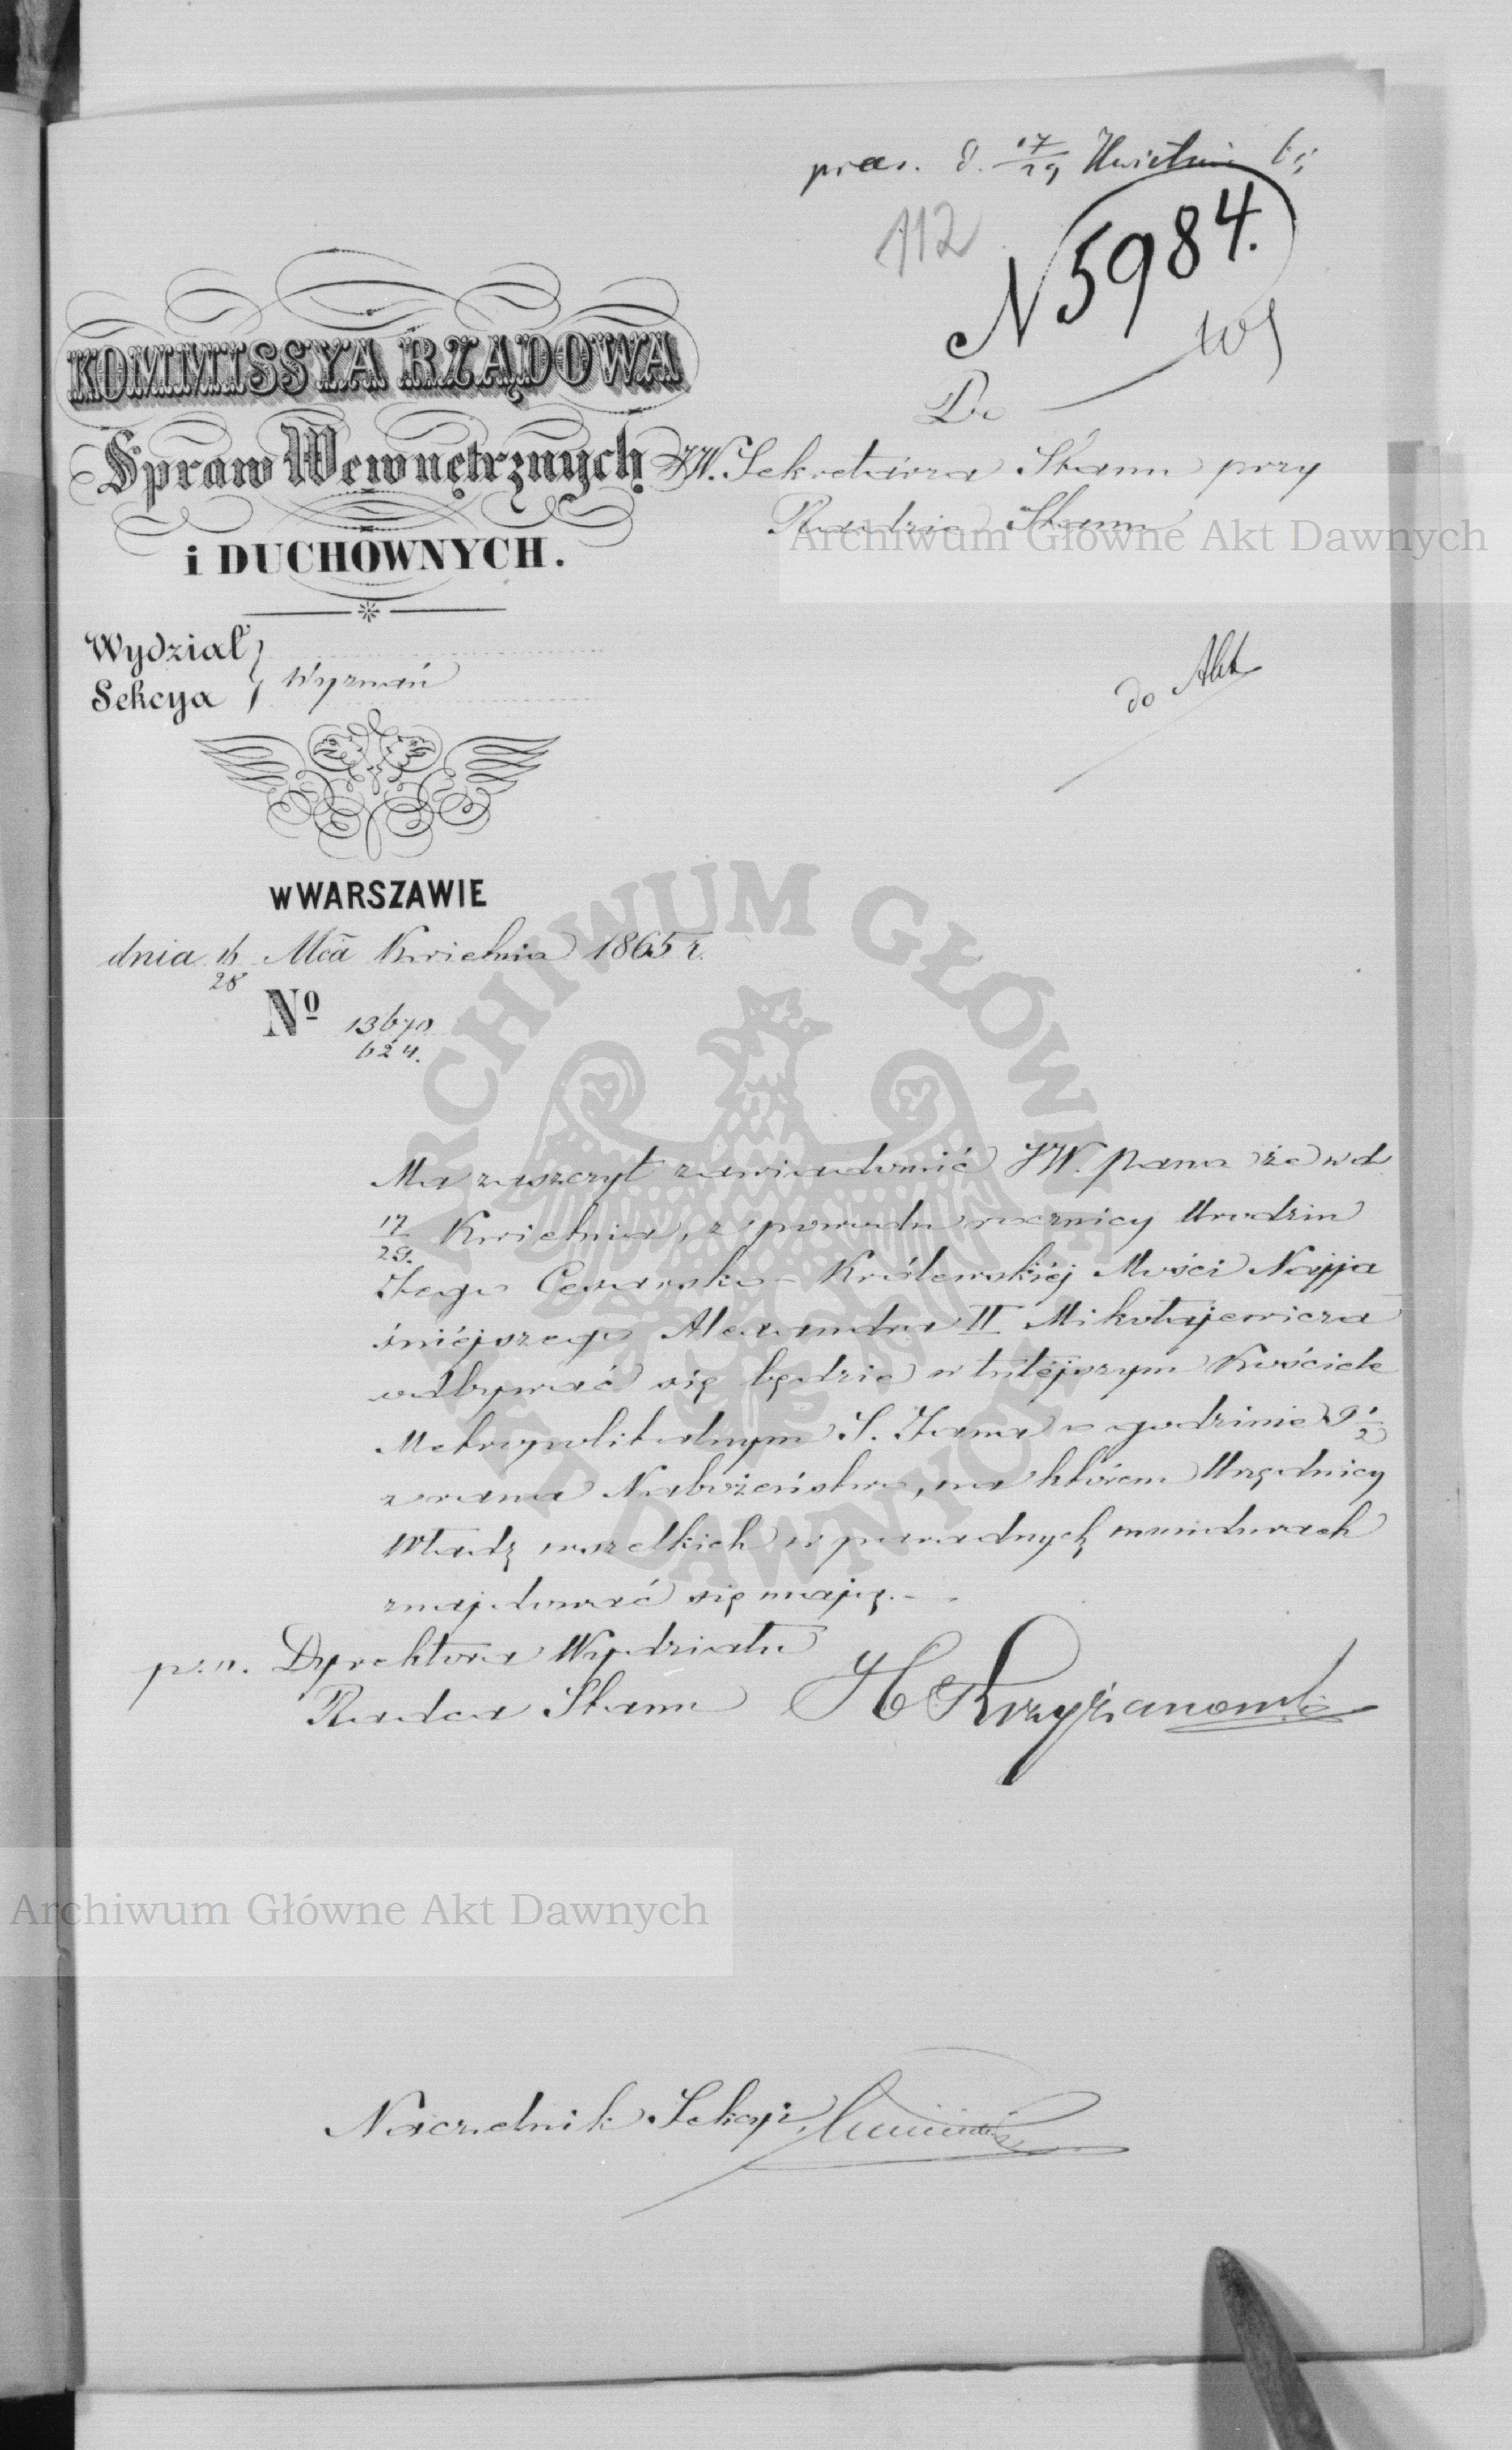 praes. d. 17/29 Kwietnia 65
112
N 5984.
KOMMISSYA RZĄDOWA
Spraw Wewnętrznych
i DUCHOWNYCH.
Do
JW. Sekretarza Stanu przy
Radzie Stanu
Wydział
Sekcya
Wyznań
do Akt
w WARSZAWIE
dnia 16/28 Mca Kwietnia 1865 r.
Nº 13670
624.
Ma zaszczyt zawiadomić JW. Pana że w d
17/29. Kwietnia, z powodu rocznicy Urodzin
Jego Cesarsko-Królewskiéj Mości Najja
śniéjszego Alexandra II Mikołajewicza
odbywać się będzie w tutéjszym Kościele
Metropolitalnym S. Jana o godzinie 9 1/2
z rana Nabożeństwo, na którem Urzędnicy
Władz wszelkich w paradnych mundurach
znajdować się mają.—
p.o. Dyrektora Wydziału
Radca Stanu H Krzyżanowski
Naczelnik Sekcyi
Archiwum Główne Akt Dawnych
Archiwum Główne Akt Dawnych
ARCHIWUM GŁÓWNE AKT DAWNYCH